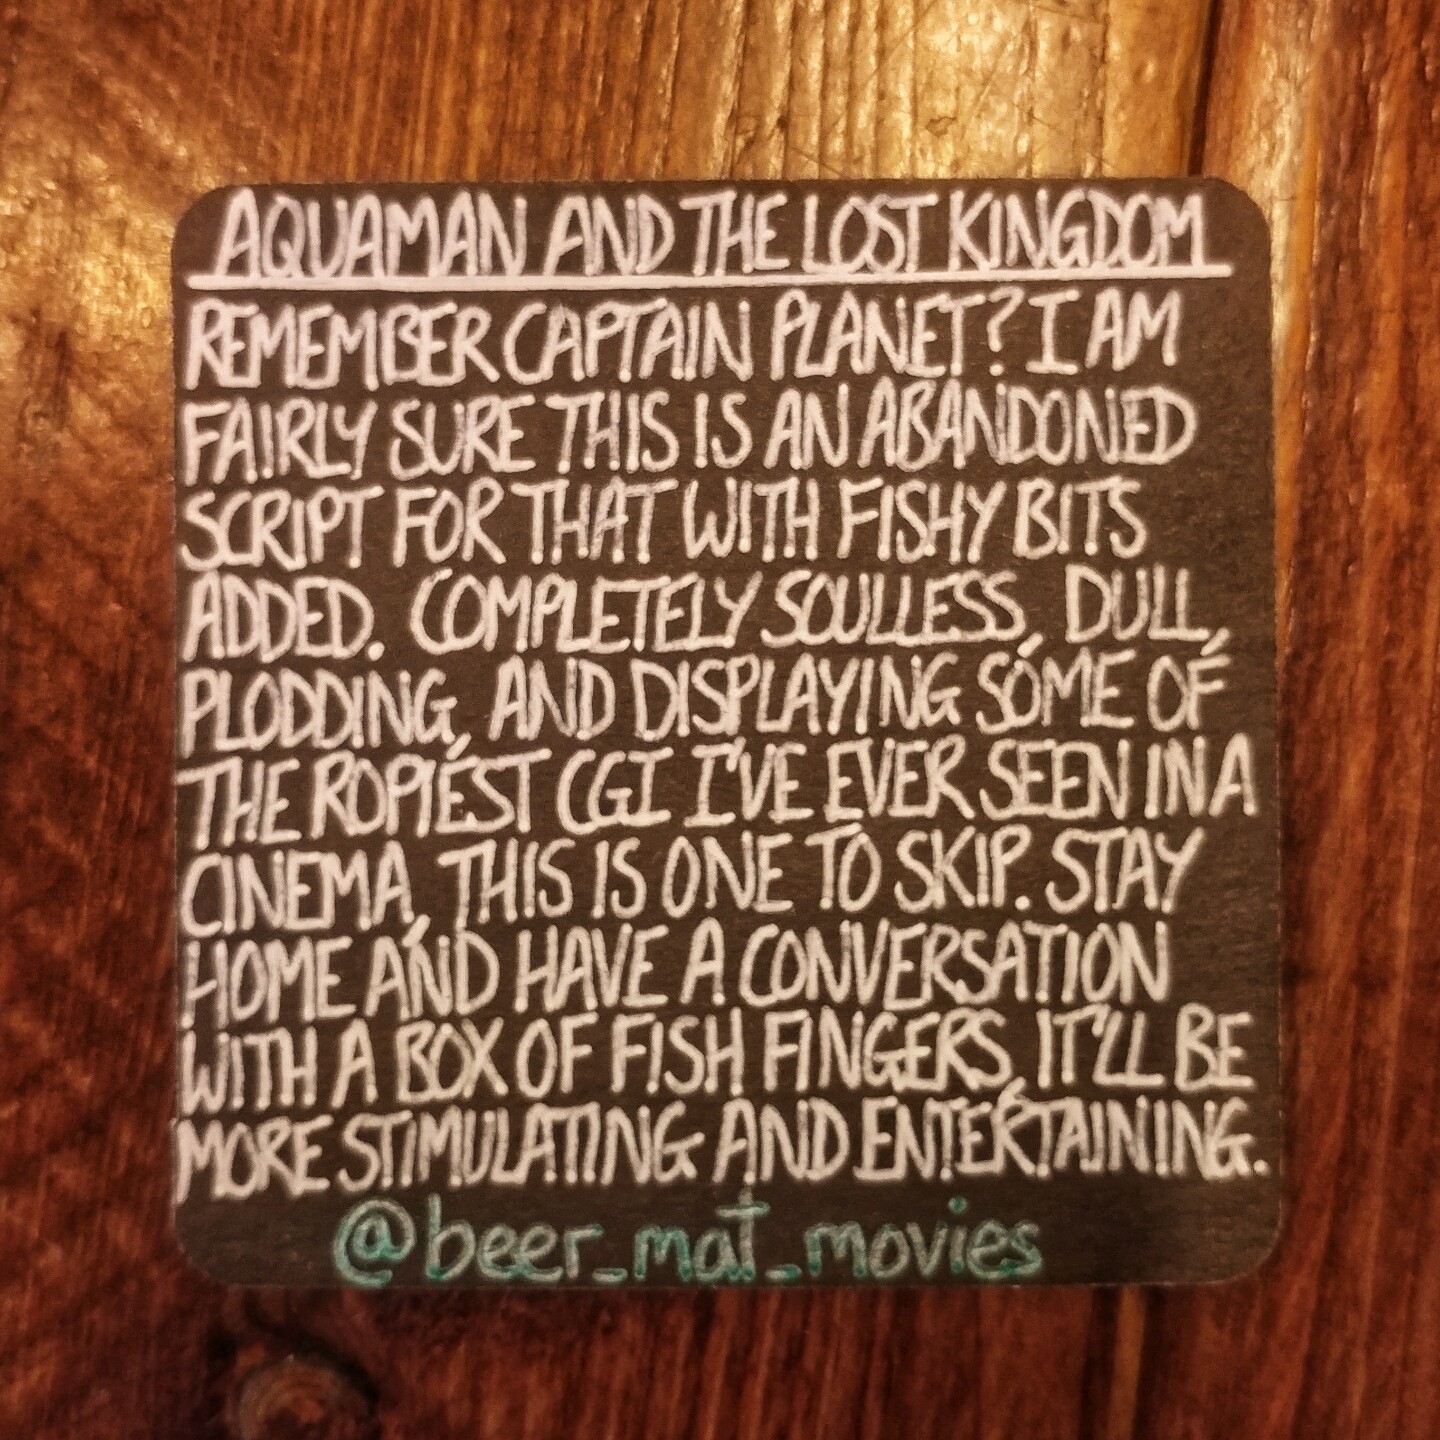 AQUAMAN AND THE LOST KINGDOM
REMEMBER CAPTAIN PLANET? I AM
FAIRLY SURE THIS IS AN ABANDONED
SCRIPT FOR THAT WITH FISHY BITS
ADDED. COMPLETELY SOULLESS, DULL,
PLODDING, AND DISPLAYING SOME OF
THE ROPIEST CGI I'VE EVER SEEN IN A
CINEMA, THIS IS ONE TO SKIP. STAY
HOME AND HAVE A CONVERSATION
WITH A BOX OF FISH FINGERS, IT'LL BE
MORE STIMULATING AND ENTERTAINING.
@beer_mat_movies